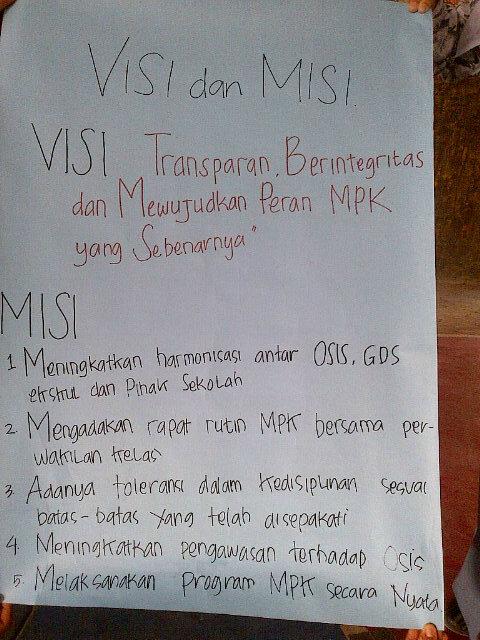 VISI dan MISI.
VISI Transparan, Berintegritas
dan Mewujudkan Peran MPK
yang Sebenarnya"
MISI
1 Meningkatkan harmonisasi antar OSIS, GDS
ekskul dan Pihak Sekolah
2. Mengadakan rapat rutin MPK bersama per-
wakilan kelas
3. Adanya toleransi dalam kedisiplinan sesuai
batas-batas yang telah disepakati
4. Meningkatkan pengawasan terhadap Osis
5. Melaksanakan Program MPK secara Nyata